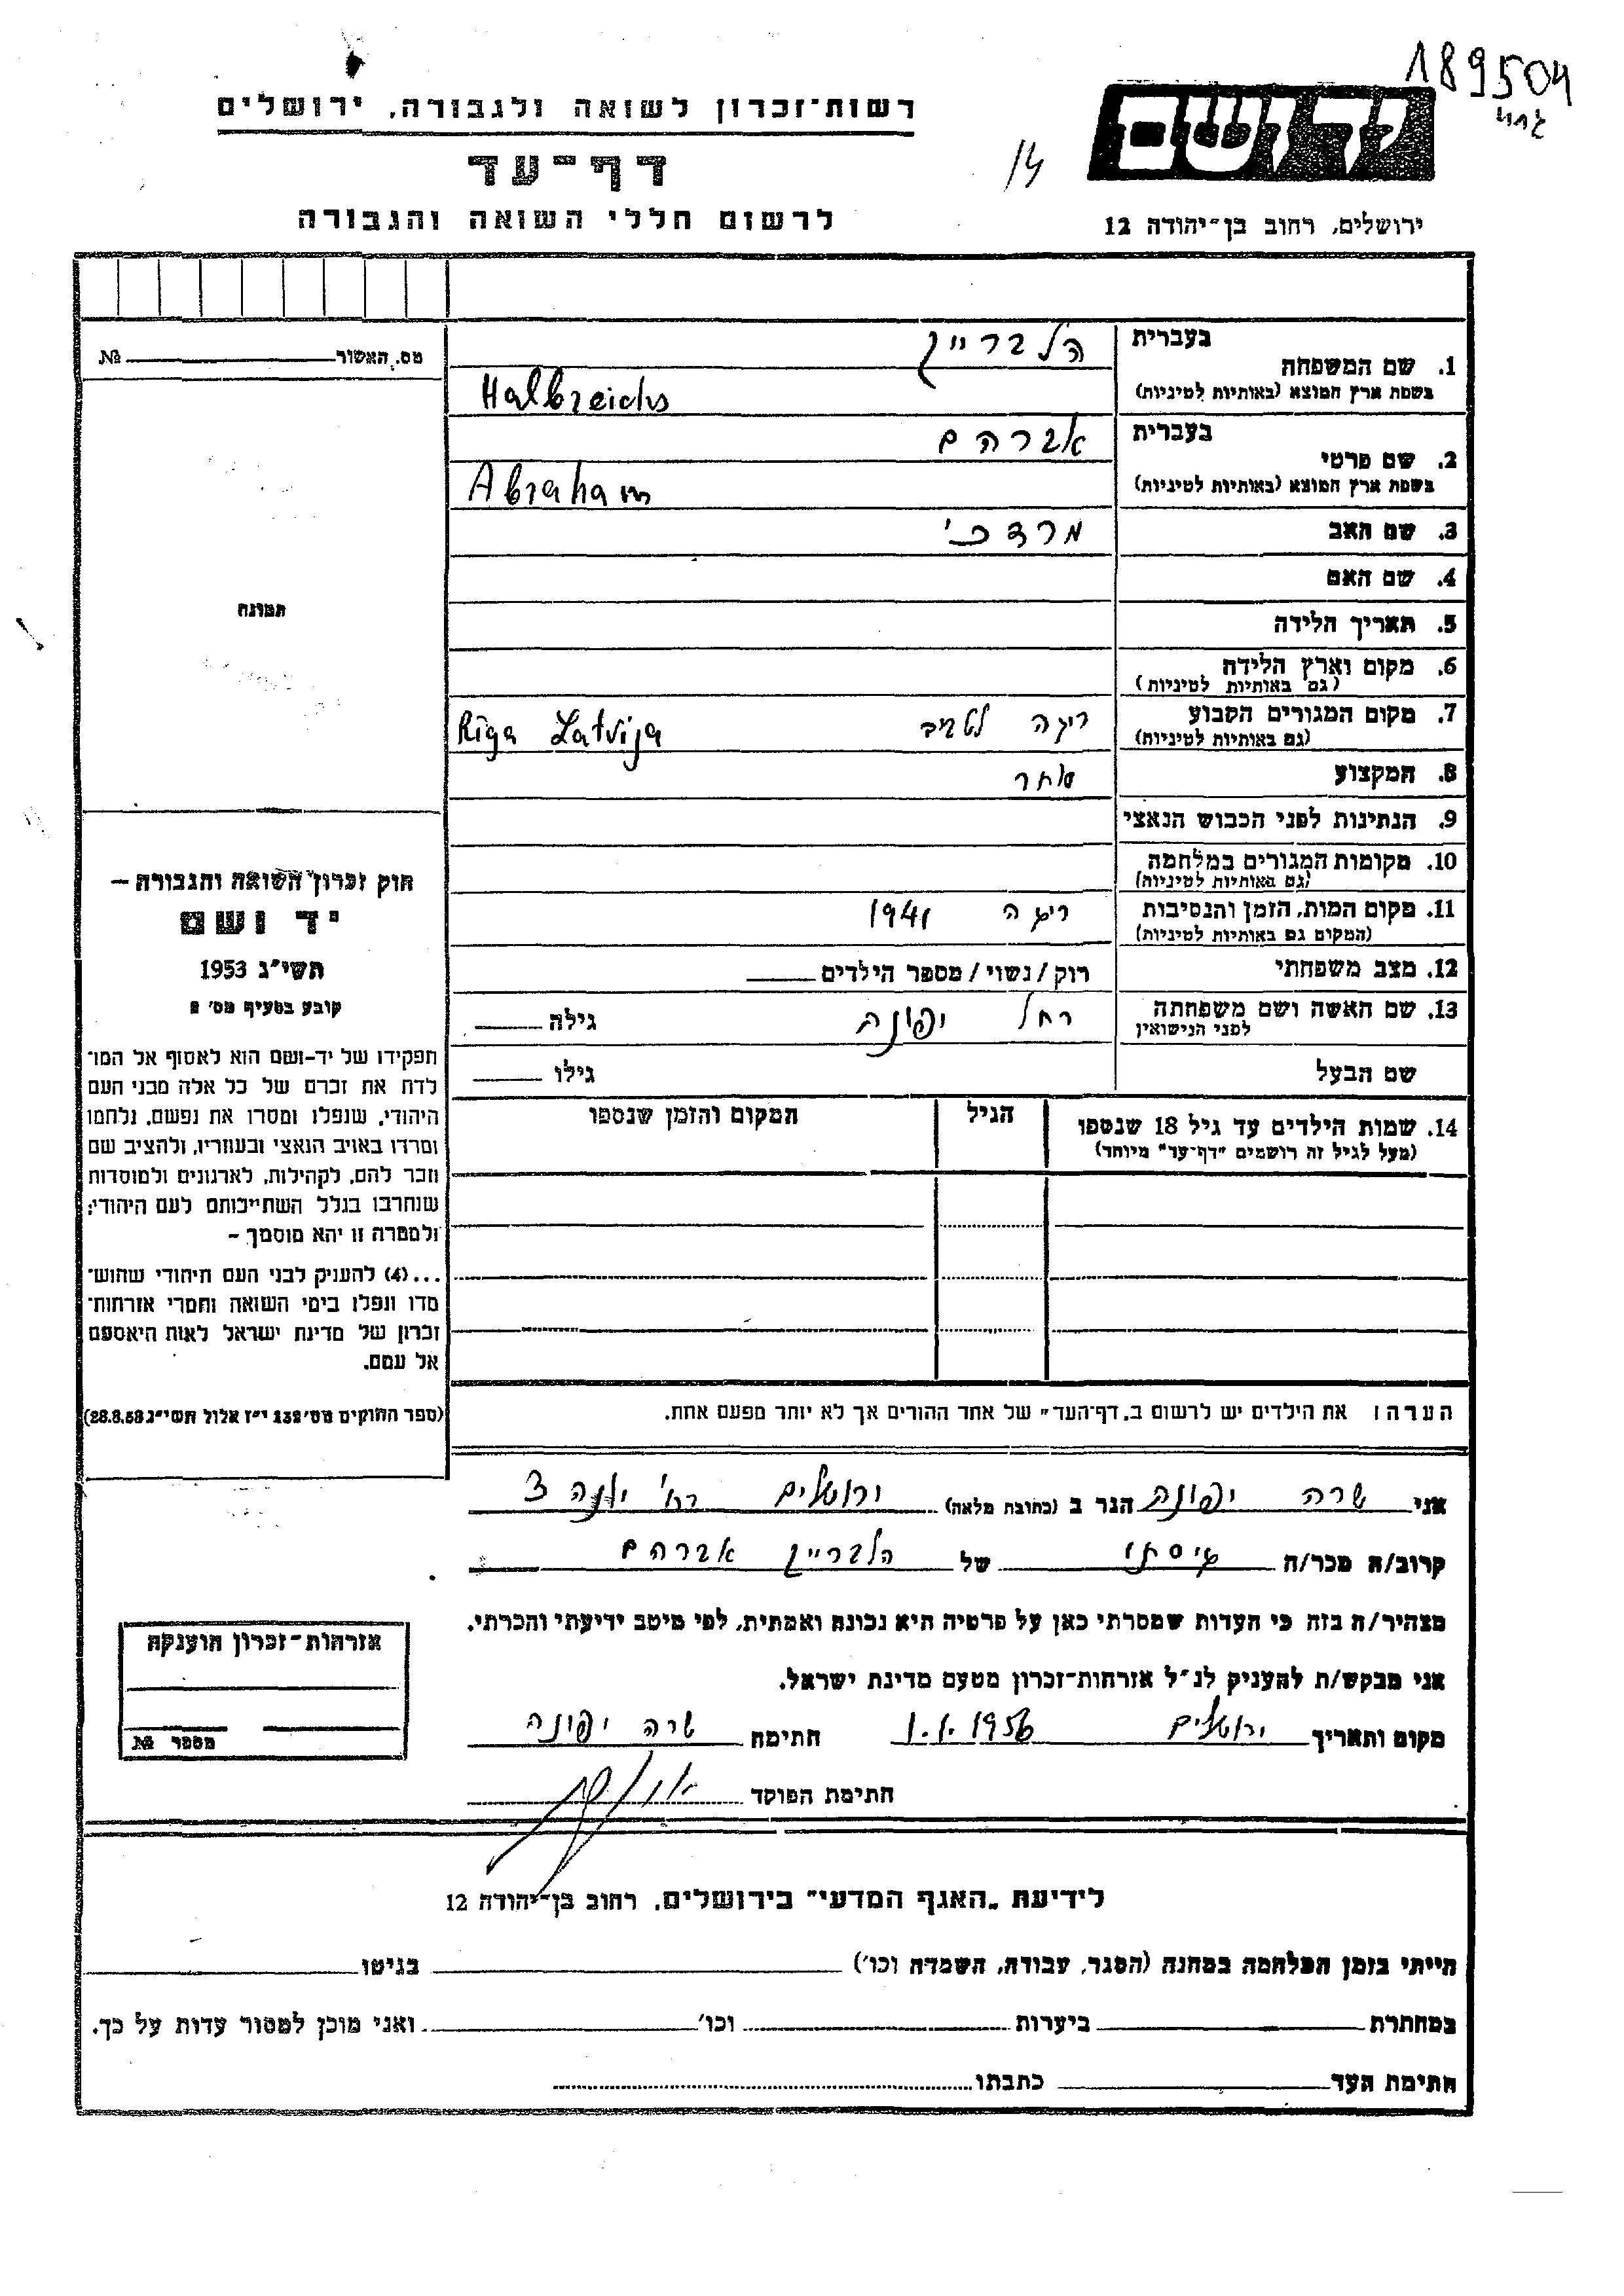 189504
יד ושם
רשות־זכרון לשואה ולגבורה, ירושלים
דף־עד
לרשום חללי השואה והגבורה
ירושלים, רחוב בן־יהודה 12
מס. האשור № 
תמונה
בעברית הלברייך
1. שם המשפחה
בשפת ארץ המוצא (באותיות לטיניות) Halbreichs
בעברית אברהם
2. שם פרטי
בשפת ארץ המוצא (באותיות לטיניות) Abraham
3. שם האב מרדכי
4. שם האם
5. תאריך הלידה
6. מקום וארץ הלידה
(גם באותיות לטיניות)
7. מקום המגורים הקבוע ריגה Rīga Latvija
(גם באותיות לטיניות)
8. המקצוע סוחר
9. הנתינות לפני הכבוש הנאצי
10. מקומות המגורים במלחמה
(גם באותיות לטיניות)
11. מקום המות, הזמן והנסיבות ריגה 1941
(המקום גם באותיות לטיניות)
12. מצב משפחתי רוק/נשוי/מספר הילדים
13. שם האשה ושם משפחתה רחל יפונה גילה
לפני הנישואין
שם הבעל גילו
14. שמות הילדים עד גיל 18 שנספו הגיל המקום והזמן שנספו
(מעל לגיל זה רושמים "דף־עד" מיוחד)
הערה: את הילדים יש לרשום ב„דף־העד" של אחד ההורים אך לא יותר מפעם אחת.
חוק זכרון השואה והגבורה –
יד ושם
תשי"ג 1953
קובע בסעיף מס' 2
תפקידו של יד-ושם הוא לאסוף אל המו־
לדת את זכרם של כל אלה מבני העם
היהודי, שנפלו ומסרו את נפשם, נלחמו
ומרדו באויב הנאצי ובעוזריו, ולהציב שם
וזכר להם, לקהילות, לארגונים ולמוסדות
שנחרבו בגלל השתייכותם לעם היהודי;
ולמטרה זו יהא מוסמך –
...(4) להעניק לבני העם היהודי שהוש־
מדו ונפלו בימי השואה והמרי אזרחות־
זכרון של מדינת ישראל לאות היאספם
אל עמם.
(ספר החוקים מס' 132 י"ז אלול תשי"ג 28.8.53)
אני שרה יפונה הגר ב (כתובת מלאה) ירושלים רח' יונה 3
קרוב/ה מכר/ה גיסתו של הלברייך אברהם
מצהיר/ה בזה כי העדות שמסרתי כאן על פרטיה היא נכונה ואמתית, לפי מיטב ידיעתי והכרתי.
אני מבקש/ת להעניק לנ"ל אזרחות־זכרון מטעם מדינת ישראל.
מקום ותאריך ירושלים 1.1.1956 חתימה שרה יפונה
חתימת הפוקד
אזרחות־זכרון הוענקה
מספר №
לידיעת „האגף המדעי" בירושלים, רחוב בן־יהודה 12
הייתי בזמן המלחמה במחנה (הסגר, עבודה, השמדה וכו') בגיטו
במחתרת ביערות וכו' ואני מוכן למסור עדות על כך.
חתימת העד כתבתו